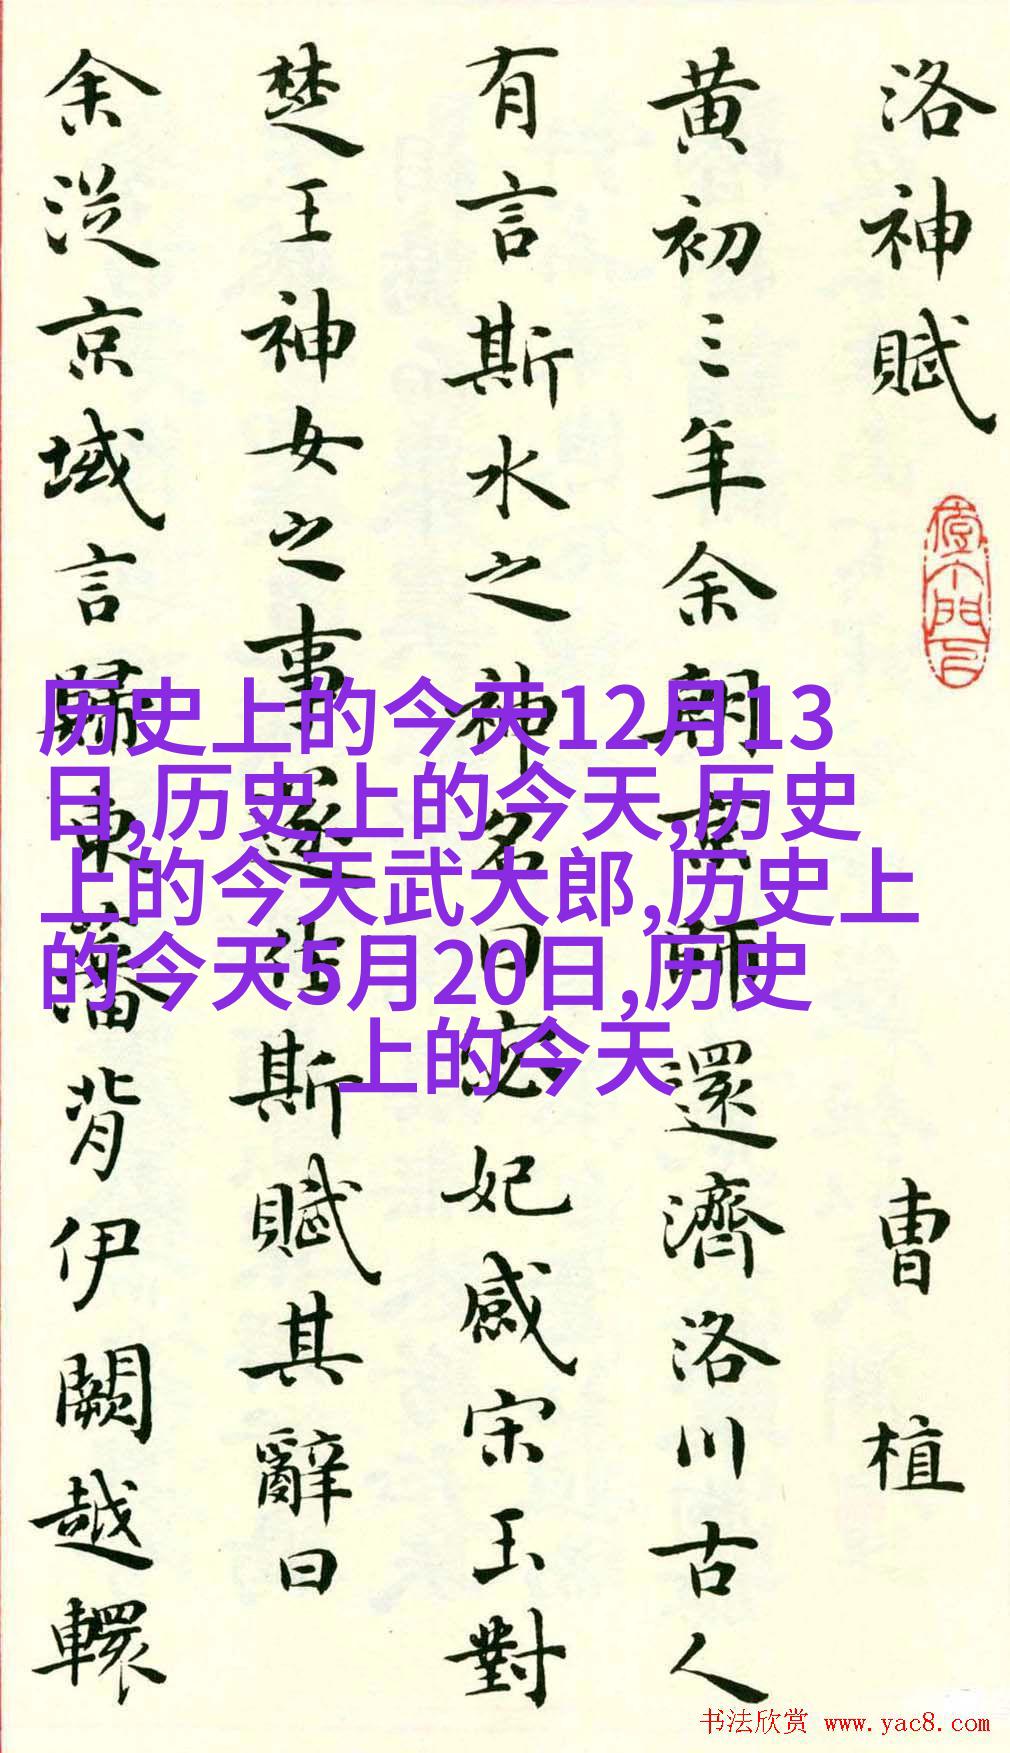 洛神賦
曹植
黄初三年余朝京師還濟洛川古人
有言斯水之神名曰宓妃感宋玉對
楚王神女之事遂作斯賦其辭曰
余從京域言歸東藩背伊闕越轘
历史上的今天12月13
日,历史上的今天,历史
上的今天武大郎,历史上
的今天5月20日,历史
上的今天
书法欣赏 www.yac8.com